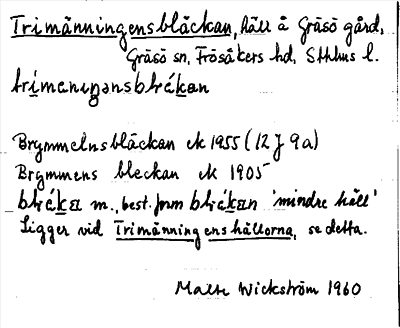 Trimänningensbläckan, häll å Gräsö gård,
Gräsö sn, Frösåkers hd, Sthlms l.
trimeningensblékan
Brymmelnsbläckan ek 1955 (12 J 9a)
Brymmens bleckan ek 1905
bléka m., best. form blékan 'mindre häll'
Ligger vid Trimänningenshällorna, se detta.
Mats Wickström 1960